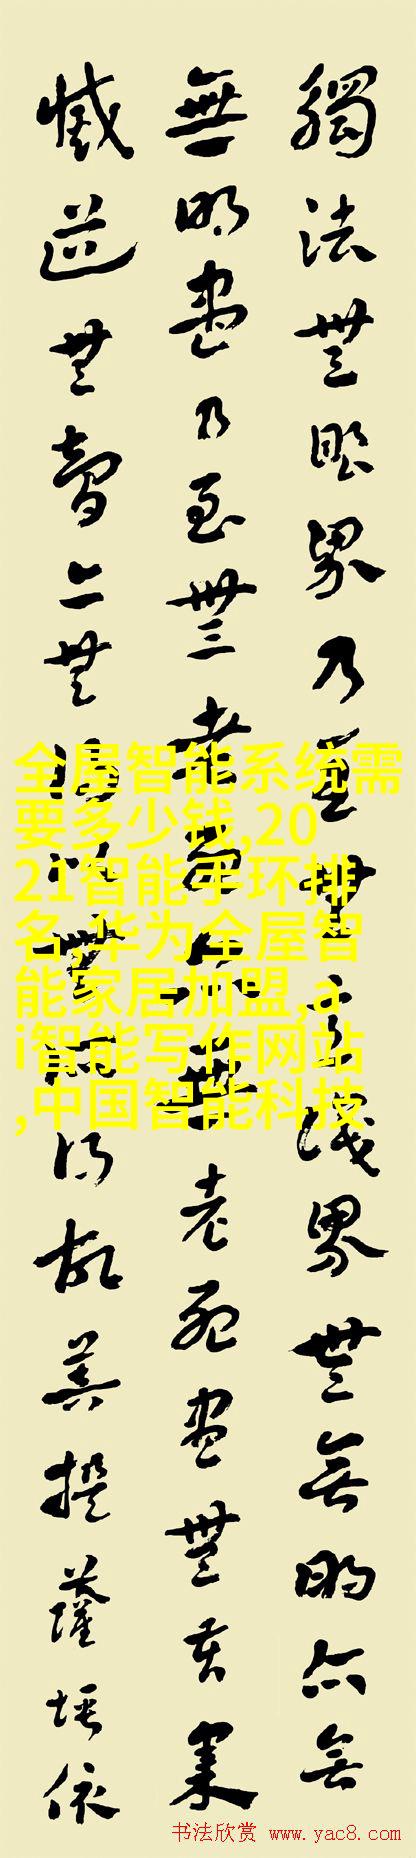 觸法無眼界乃至無意識界無無明亦無
無明盡乃至無老死亦無老死盡無苦集
滅道無智亦無得以無所得故菩提薩埵依
全屋智能系统需
要多少钱,20
21智能手环排
名,华为全屋智
能家居加盟,a
i智能写作网站
,中国智能科技
书法欣赏 www.yac8.com